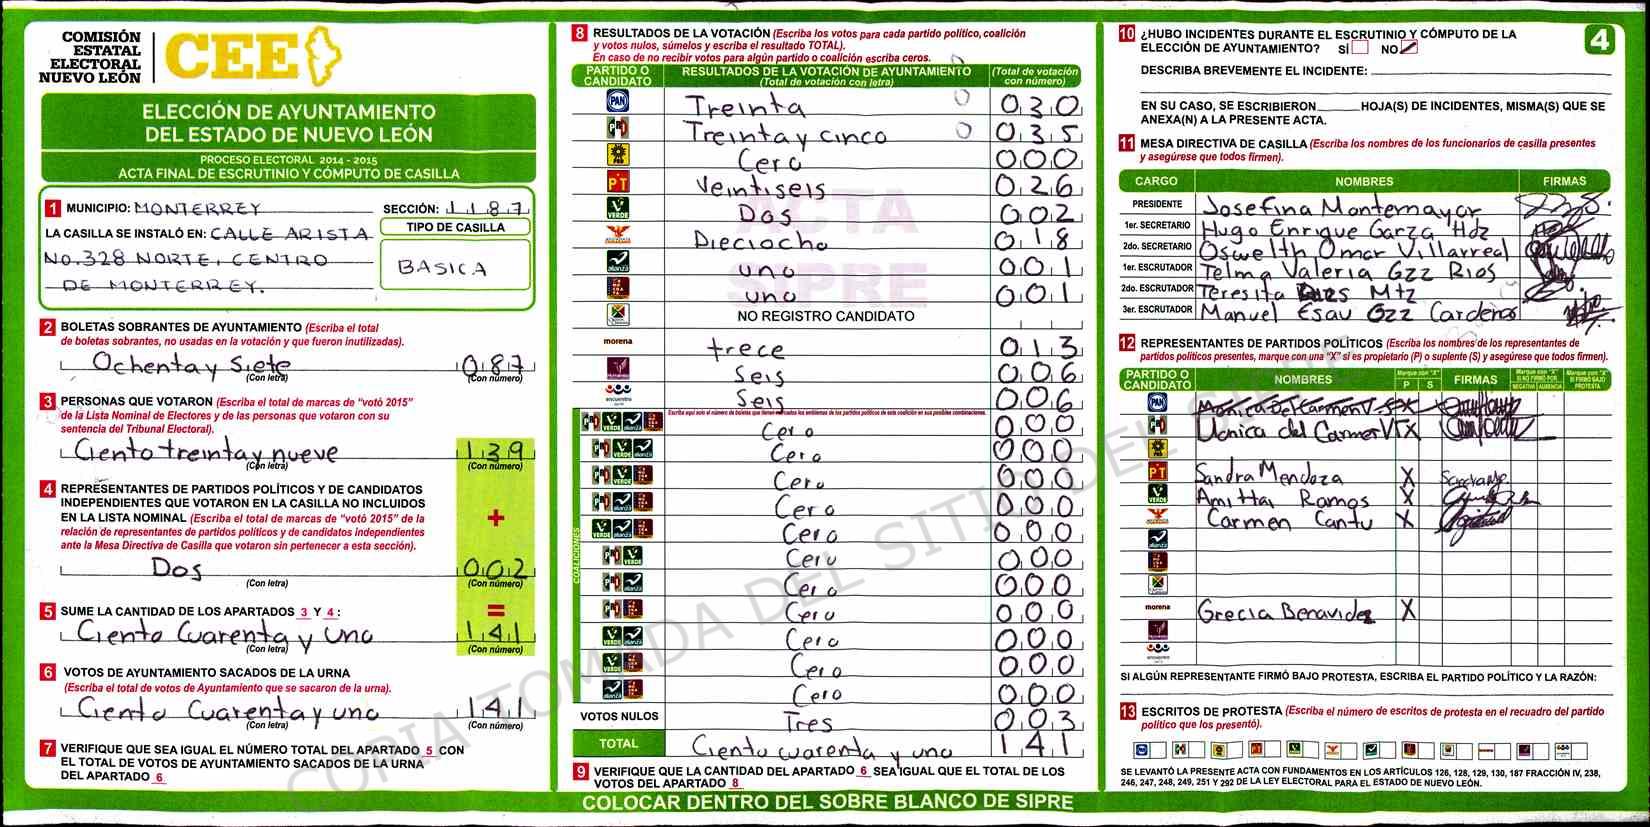 COMISIÓN
ESTATAL
ELECTORAL
NUEVO LEÓN
CEE
ELECCIÓN DE AYUNTAMIENTO
DEL ESTADO DE NUEVO LEÓN
PROCESO ELECTORAL 2014 - 2015
ACTA FINAL DE ESCRUTINIO Y CÓMPUTO DE CASILLA
1 MUNICIPIO: MONTERREY SECCIÓN: 1187
LA CASILLA SE INSTALÓ EN: CALLE ARISTA
No. 328 NORTE, CENTRO
DE MONTERREY.
TIPO DE CASILLA
BASICA
2 BOLETAS SOBRANTES DE AYUNTAMIENTO (Escriba el total
de boletas sobrantes, no usadas en la votación y que fueron inutilizadas).
Ochenta y Siete 087
(Con letra) (Con número)
3 PERSONAS QUE VOTARON (Escriba el total de marcas de “votó 2015”
de la Lista Nominal de Electores y de las personas que votaron con su
sentencia del Tribunal Electoral).
Ciento treinta y nueve 139
(Con letra) (Con número)
4 REPRESENTANTES DE PARTIDOS POLÍTICOS Y DE CANDIDATOS
INDEPENDIENTES QUE VOTARON EN LA CASILLA NO INCLUIDOS
EN LA LISTA NOMINAL (Escriba el total de marcas de “votó 2015” de la
relación de representantes de partidos políticos y de candidatos independientes
ante la Mesa Directiva de Casilla que votaron sin pertenecer a esta sección).
+
Dos 002
(Con letra) (Con número)
5 SUME LA CANTIDAD DE LOS APARTADOS 3 Y 4: =
Ciento Cuarenta y uno 141
(Con letra) (Con número)
6 VOTOS DE AYUNTAMIENTO SACADOS DE LA URNA
(Escriba el total de votos de Ayuntamiento que se sacaron de la urna).
Ciento Cuarenta y uno 141
(Con letra) (Con número)
7 VERIFIQUE QUE SEA IGUAL EL NÚMERO TOTAL DEL APARTADO 5 CON
EL TOTAL DE VOTOS DE AYUNTAMIENTO SACADOS DE LA URNA
DEL APARTADO 6
8 RESULTADOS DE LA VOTACIÓN (Escriba los votos para cada partido político, coalición
y votos nulos, súmelos y escriba el resultado TOTAL).
En caso de no recibir votos para algún partido o coalición escriba ceros.
PARTIDO O CANDIDATO RESULTADOS DE LA VOTACIÓN DE AYUNTAMIENTO (Total de votación con letra) (Total de votación con número)
PAN Treinta 030
PRI Treinta y cinco 035
PRD Cero 000
PT Veintiseis 026
VERDE Dos 002
Dieciocho 018
alianza uno 001
uno 001
NO REGISTRO CANDIDATO
morena trece 013
Seis 006
encuentro Seis 006
Escriba aquí solo el número de boletas que tienen marcados los emblemas de los partidos políticos de esta coalición en sus posibles combinaciones.
COALICIONES
Cero 000
Cero 000
Cero 000
Cero 000
Cero 000
Cero 000
Cero 000
Cero 000
Cero 000
Cero 000
Cero 000
VOTOS NULOS Tres 003
TOTAL Ciento cuarenta y uno 141
9 VERIFIQUE QUE LA CANTIDAD DEL APARTADO 6 SEA IGUAL QUE EL TOTAL DE LOS
VOTOS DEL APARTADO 8
COLOCAR DENTRO DEL SOBRE BLANCO DE SIPRE
ACTA
SIPRE
COPIA TOMADA DEL SITIO DEL
10 ¿HUBO INCIDENTES DURANTE EL ESCRUTINIO Y CÓMPUTO DE LA
ELECCIÓN DE AYUNTAMIENTO? SÍ NO
4
DESCRIBA BREVEMENTE EL INCIDENTE:
EN SU CASO, SE ESCRIBIERON HOJA(S) DE INCIDENTES, MISMA(S) QUE SE
ANEXA(N) A LA PRESENTE ACTA.
11 MESA DIRECTIVA DE CASILLA (Escriba los nombres de los funcionarios de casilla presentes
y asegúrese que todos firmen).
CARGO NOMBRES FIRMAS
PRESIDENTE Josefina Montemayor
1er. SECRETARIO Hugo Enrique Garza Hdz
2do. SECRETARIO Oswelth Omar Villarreal
1er. ESCRUTADOR Telma Valeria Gzz Rios
2do. ESCRUTADOR Teresita Mtz
3er. ESCRUTADOR Manuel Esau Gzz Cardenas
12 REPRESENTANTES DE PARTIDOS POLÍTICOS (Escriba los nombres de los representantes de
partidos políticos presentes, marque con una “X” si es propietario (P) o suplente (S) y asegúrese que todos firmen).
PARTIDO O CANDIDATO NOMBRES Marque con “X” P S FIRMAS Marque con “X” SI NO FIRMÓ POR NEGATIVA AUSENCIA Marque con “X” SI FIRMÓ BAJO PROTESTA
PAN Monica del Carmen V. X
PRI Monica del Carmen VT X
PRD
PT Sandra Mendoza X
VERDE Amitta Ramos X
Carmen Cantu X
alianza
morena Grecia Benavides X
encuentro
SI ALGÚN REPRESENTANTE FIRMÓ BAJO PROTESTA, ESCRIBA EL PARTIDO POLÍTICO Y LA RAZÓN:
13 ESCRITOS DE PROTESTA (Escriba el número de escritos de protesta en el recuadro del partido
político que los presentó).
SE LEVANTÓ LA PRESENTE ACTA CON FUNDAMENTOS EN LOS ARTÍCULOS 126, 128, 129, 130, 187 FRACCIÓN IV, 238,
246, 247, 248, 249, 251 Y 292 DE LA LEY ELECTORAL PARA EL ESTADO DE NUEVO LEÓN.